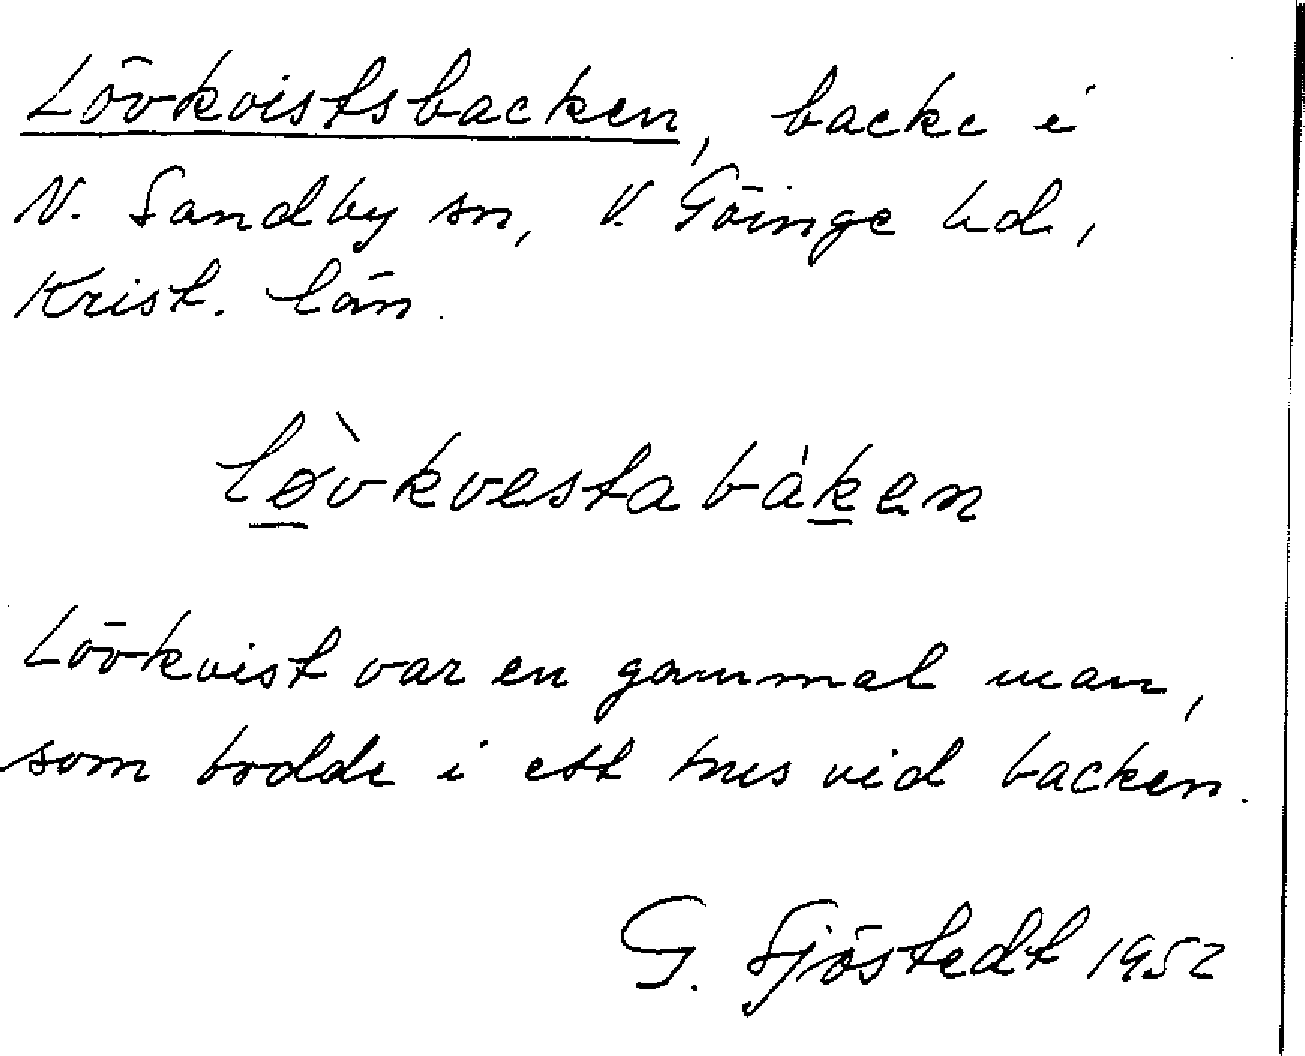 Lövkvistsbacken, backe i
N. Sandby sn, V. Göinge hd,
Krist. län.
lø̀vkvestabákan
Lövkvist var en gammal man,
som bodde i ett hus vid backen.
G. Sjöstedt 1952